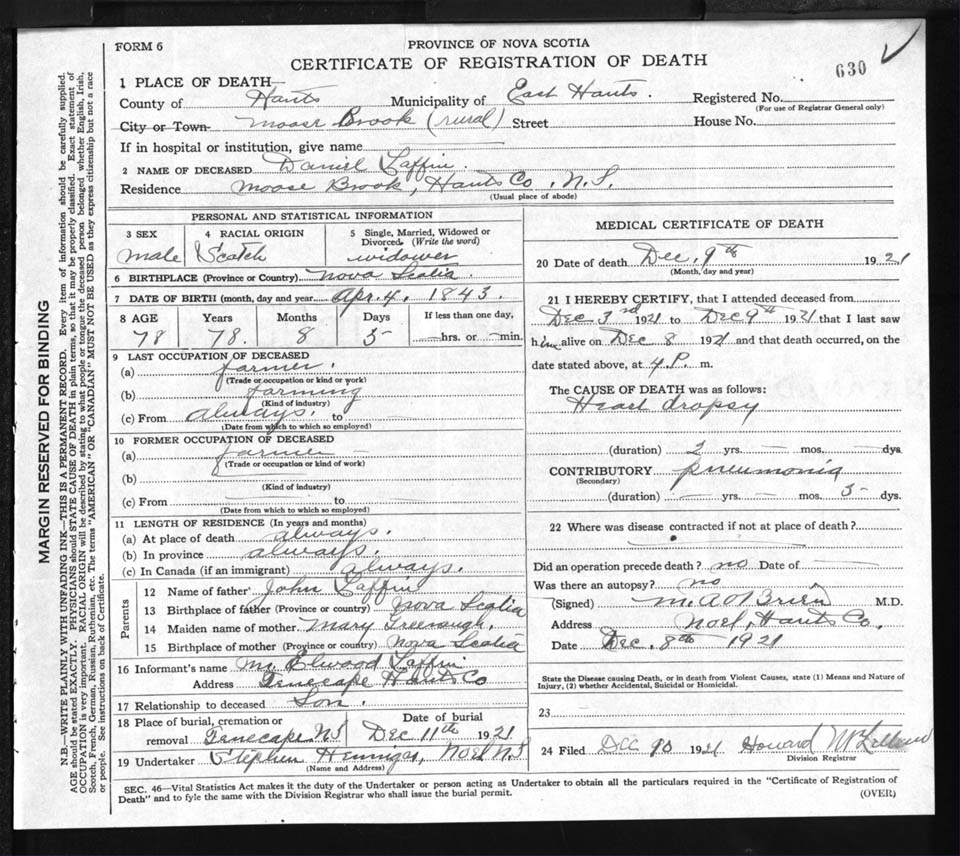 FORM 6
PROVINCE OF NOVA SCOTIA
CERTIFICATE OF REGISTRATION OF DEATH
630
1 PLACE OF DEATH—
County of Hants Municipality of East Hants. Registered No.
(For use of Registrar General only)
City or Town Moose Brook (rural) Street House No.
If in hospital or institution, give name
2 NAME OF DECEASED Daniel Laffin.
Residence Moose Brook, Hants Co., N.S.
(Usual place of abode)
PERSONAL AND STATISTICAL INFORMATION
3 SEX 4 RACIAL ORIGIN 5 Single, Married, Widowed or Divorced. (Write the word)
male Scotch widower
6 BIRTHPLACE (Province or Country) Nova Scotia.
7 DATE OF BIRTH (month, day and year) Apr. 4, 1843.
8 AGE Years Months Days If less than one day,
78 78. 8 5 hrs. or min.
9 LAST OCCUPATION OF DECEASED
(a) farmer.
(Trade or occupation or kind or work)
(b) farming
(Kind of industry)
(c) From always. to
(Date from which to which so employed)
10 FORMER OCCUPATION OF DECEASED
(a) farmer
(Trade or occupation or kind of work)
(b)
(Kind of industry)
(c) From to
(Date from which to which so employed)
11 LENGTH OF RESIDENCE (In years and months)
(a) At place of death always.
(b) In province always.
(c) In Canada (if an immigrant) always.
Parents
12 Name of father John Laffin
13 Birthplace of father (Province or country) Nova Scotia
14 Maiden name of mother Mary Greenough,
15 Birthplace of mother (Province or country) Nova Scotia
16 Informant's name Mr. Elwood Laffin
Address Tenecape Hants Co
17 Relationship to deceased Son.
18 Place of burial, cremation or removal Tenecape N.S Date of burial Dec 11th 1921
19 Undertaker Stephen Hennigar, Noel N.S
(Name and Address)
MEDICAL CERTIFICATE OF DEATH
20 Date of death Dec. 9th 1921
(Month, day and year)
21 I HEREBY CERTIFY, that I attended deceased from
Dec 3rd 1921 to Dec 9th 1921 that I last saw
him alive on Dec 8 1921 and that death occurred, on the
date stated above, at 4 P. m.
The CAUSE OF DEATH was as follows:
Heart dropsy
(duration) 2 yrs. — mos. — dys.
CONTRIBUTORY pneumonia
(Secondary)
(duration) — yrs. — mos. 5 dys.
22 Where was disease contracted if not at place of death?
Did an operation precede death? no Date of —
Was there an autopsy? no
(Signed) M. A O'Brien M.D.
Address Noel, Hants Co.
Date Dec. 8th 1921
State the Disease causing Death, or in death from Violent Causes, state (1) Means and Nature of
Injury, (2) whether Accidental, Suicidal or Homicidal.
23
24 Filed Dec 90 1921 Howard
Division Registrar
SEC. 46—Vital Statistics Act makes it the duty of the Undertaker or person acting as Undertaker to obtain all the particulars required in the "Certificate of Registration of
Death" and to fyle the same with the Division Registrar who shall issue the burial permit.
(OVER)
MARGIN RESERVED FOR BINDING
N.B.—WRITE PLAINLY WITH UNFADING INK—THIS IS A PERMANENT RECORD. Every item of information should be carefully supplied.
AGE should be stated EXACTLY. PHYSICIANS should STATE CAUSE OF DEATH in plain terms, so that it may be properly classified. Exact statement of
OCCUPATION is very important. RACIAL ORIGIN will be described by stating to what people or tongue the deceased person belonged whether English, Irish,
Scotch, French, German, Russian, Ruthenian, etc. The terms "AMERICAN" OR "CANADIAN" MUST NOT BE USED as they express citizenship but not a race
or people. See instructions on back of Certificate.